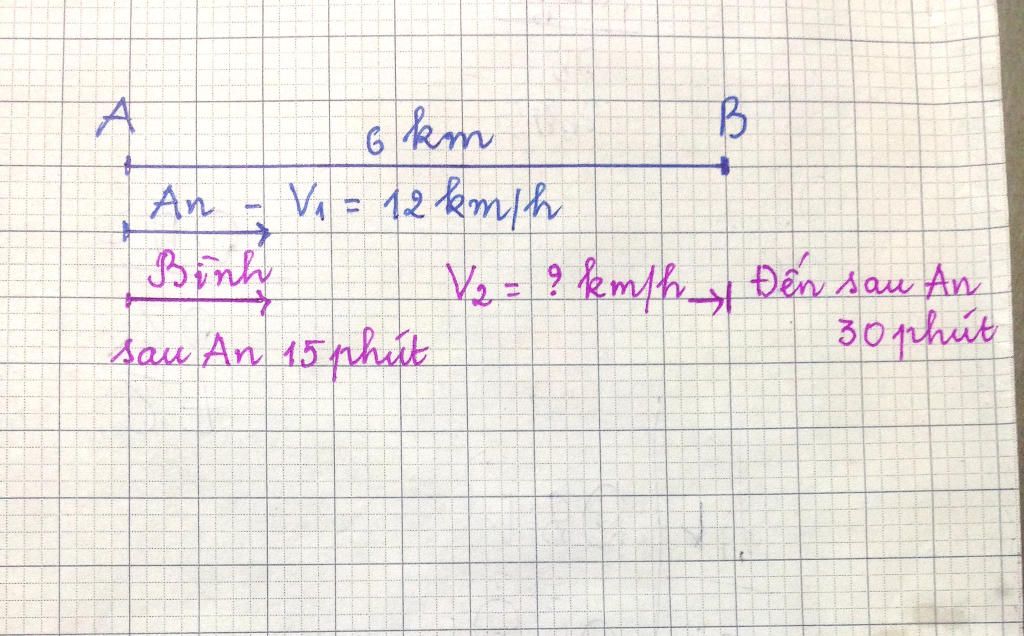 A B
6 km
An - V₁ = 12 km/h
Bình
V₂ = ? km/h Đến sau An
30 phút
sau An 15 phút